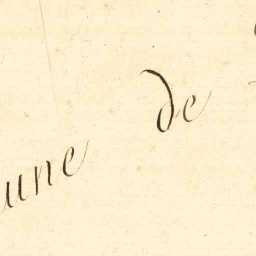 une de